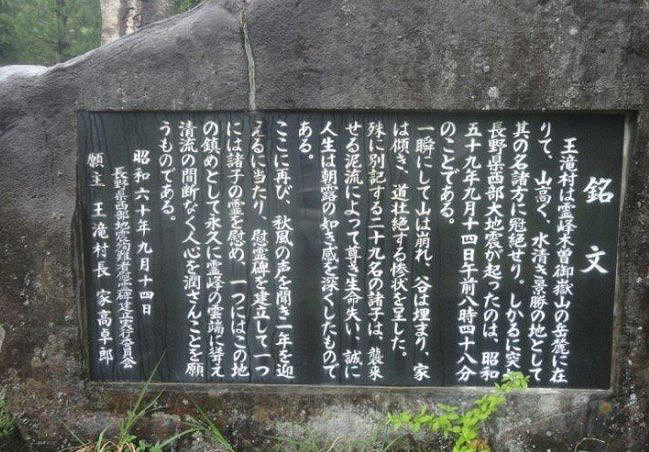 銘文
王滝村は霊峰木曽御嶽山の岳麓に在
りて、山高く、水清き景勝の地として
其の名諸方に冠絶せり。しかるに突如
長野県西部大地震が起ったのは、昭和
五十九年九月十四日午前八時四十八分
のことである。
一瞬にして山は崩れ、谷は埋まり、家
は傾き、道壮絶する惨状を呈した。
殊に別記する二十九名の諸子は、襲来
せる泥流によって尊き生命失い、誠に
人生は朝露の如き感を深くしたもので
ある。
ここに再び、秋風の声を聞き一年を迎
えるに当たり、慰霊碑を建立して一つ
には諸子の霊を慰め、一つにはこの地
の鎮めとして永久に霊峰の雲端に聳え
清流の間断なく人心を潤さんことを願
うものである。
昭和六十年九月十四日
長野県西部地震遭難者慰霊碑建立実行委員会
願主 王滝村長 家高卓郎